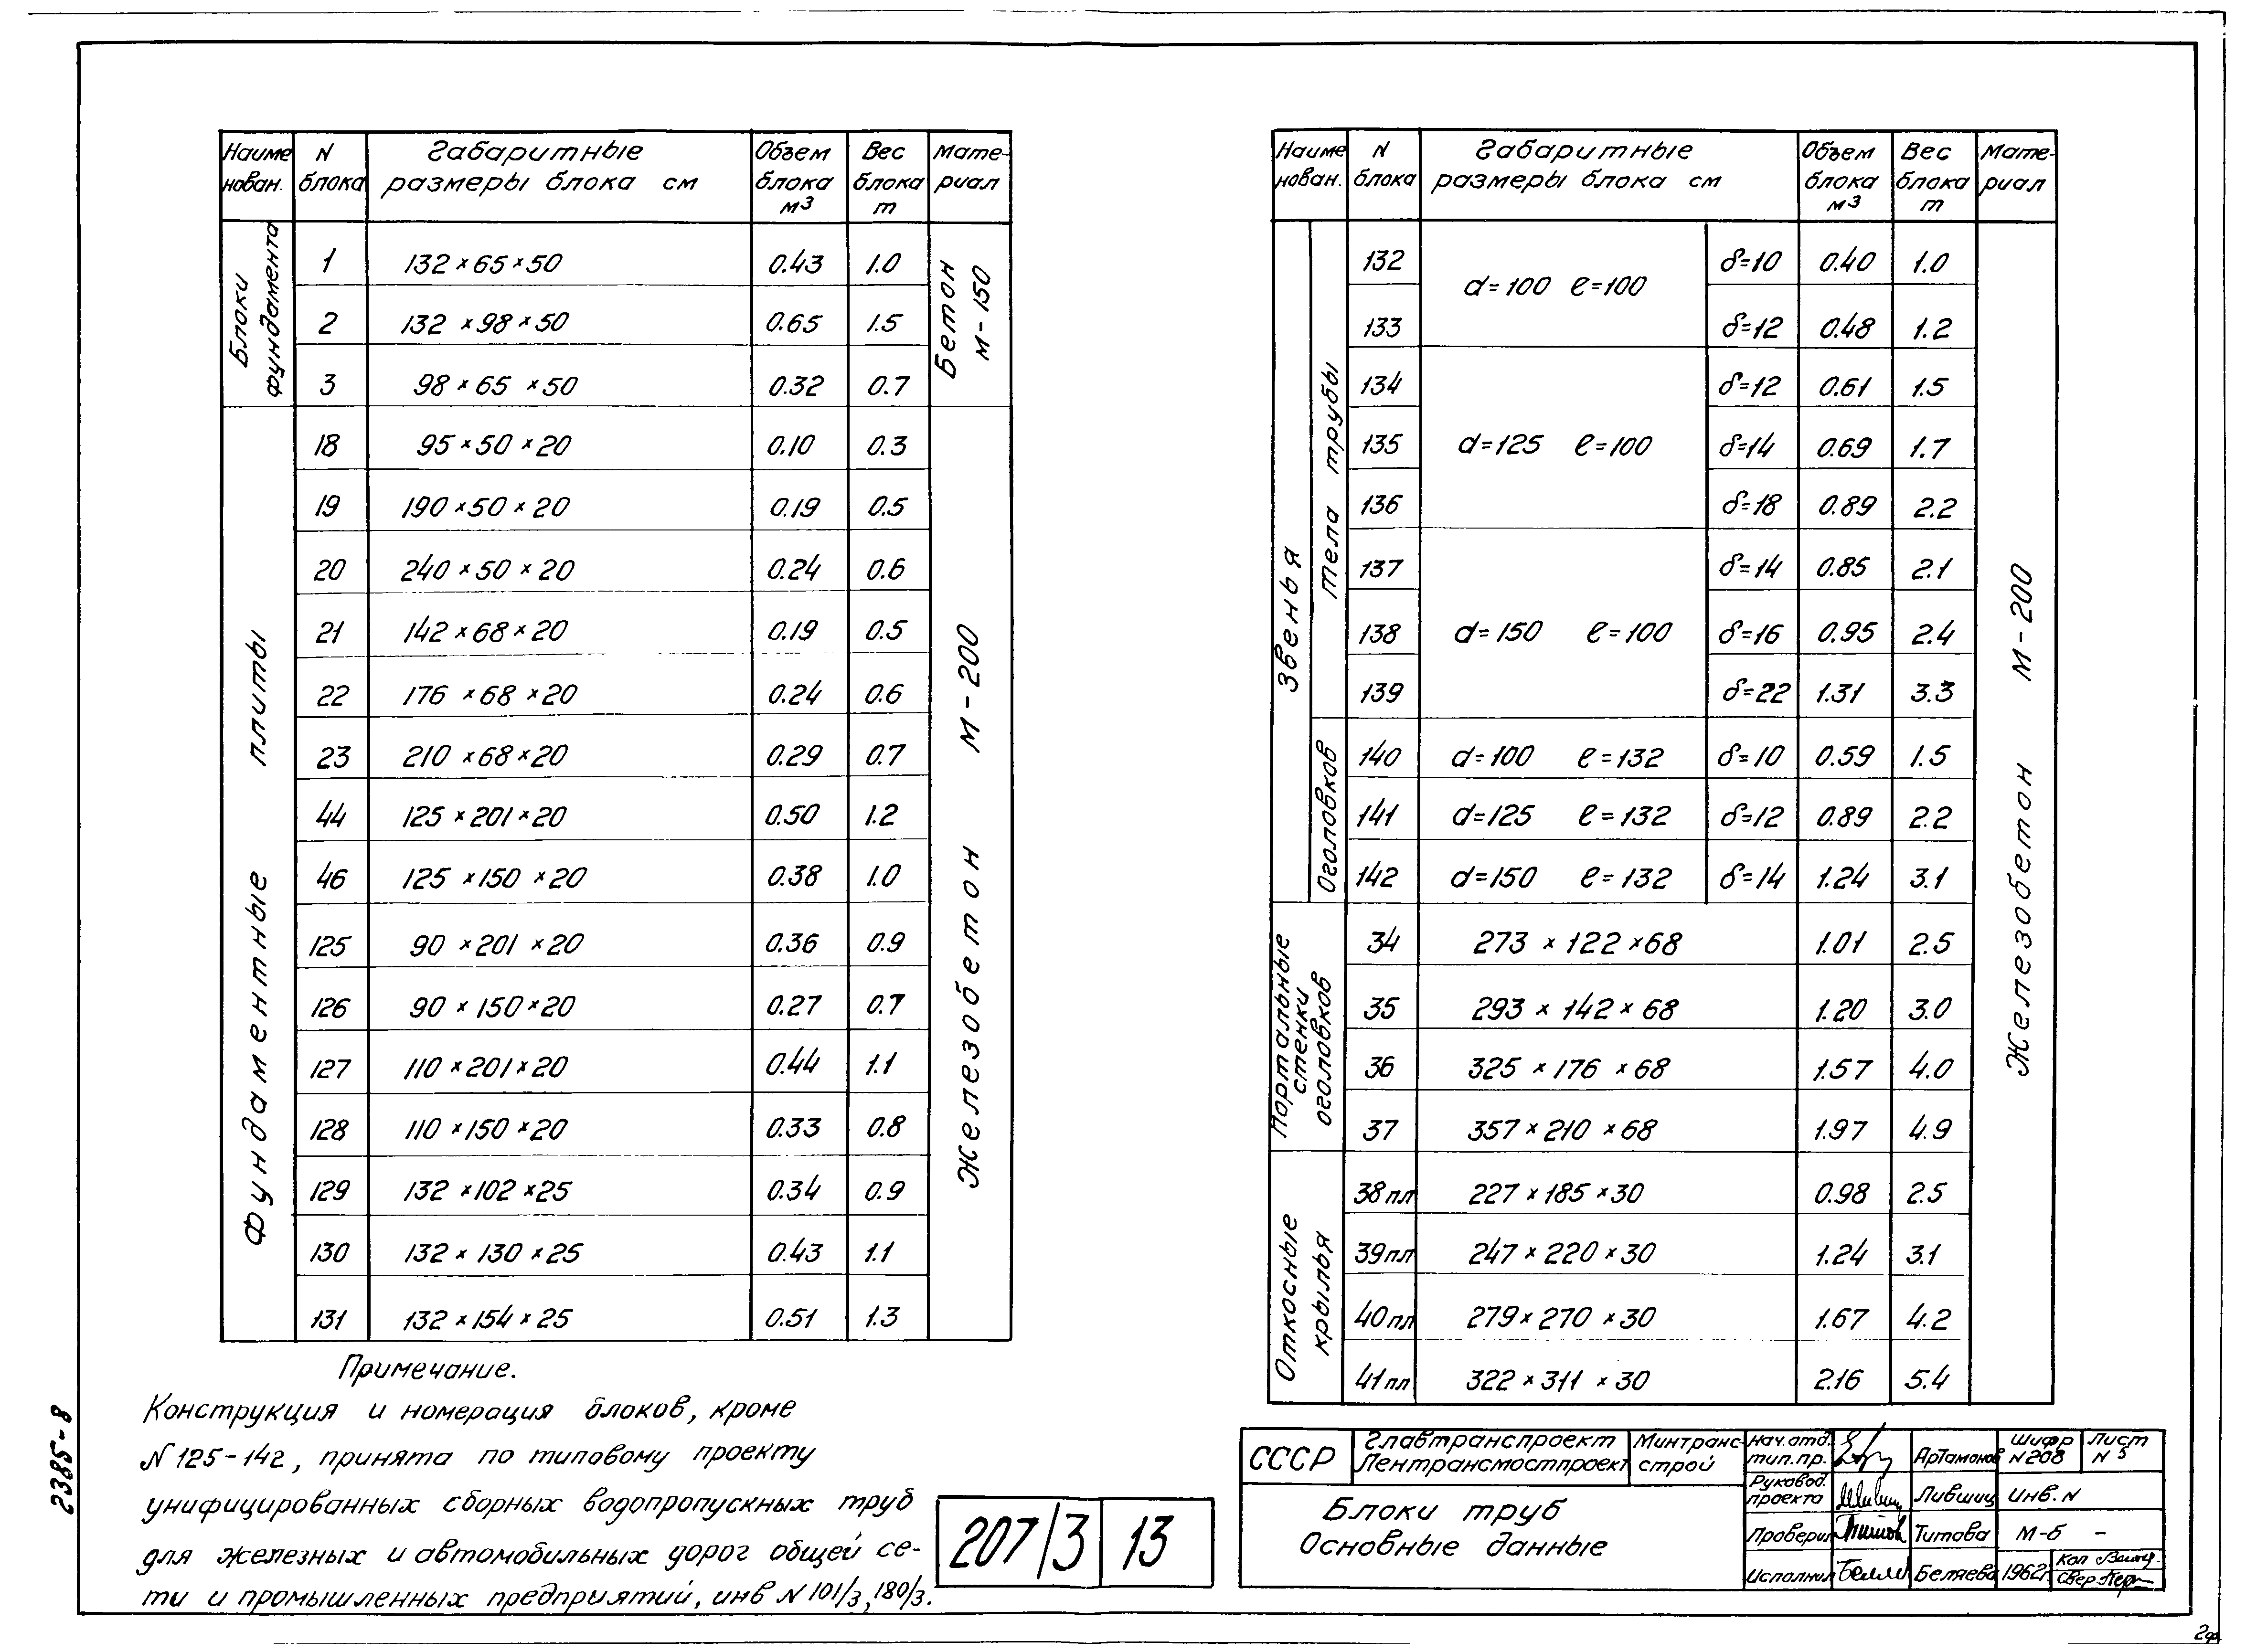 Наиме нован. N блока Габаритные размеры блока см Объем блока м3 Вес блока т Мате- риал
Блоки фундамента
1 132×65×50 0.43 1.0
2 132×98×50 0.65 1.5
3 98×65×50 0.32 0.7
Бетон М-150
Фундаментные плиты
18 95×50×20 0.10 0.3
19 190×50×20 0.19 0.5
20 240×50×20 0.24 0.6
21 142×68×20 0.19 0.5
22 176×68×20 0.24 0.6
23 210×68×20 0.29 0.7
44 125×201×20 0.50 1.2
46 125×150×20 0.38 1.0
125 90×201×20 0.36 0.9
126 90×150×20 0.27 0.7
127 110×201×20 0.44 1.1
128 110×150×20 0.33 0.8
129 132×102×25 0.34 0.9
130 132×130×25 0.43 1.1
131 132×154×25 0.51 1.3
Железобетон М-200
Примечание.
Конструкция и номерация блоков, кроме
N 125-142, принята по типовому проекту
унифицированных сборных водопропускных труб
для железных и автомобильных дорог общей се-
ти и промышленных предприятий, инв N 101/3, 180/3.
Наиме нован. N блока Габаритные размеры блока см Объем блока м3 Вес блока т Мате- риал
Звенья
тела трубы
132 d=100 ℓ=100 δ=10 0.40 1.0
133 δ=12 0.48 1.2
134 δ=12 0.61 1.5
135 d=125 ℓ=100 δ=14 0.69 1.7
136 δ=18 0.89 2.2
137 δ=14 0.85 2.1
138 d=150 ℓ=100 δ=16 0.95 2.4
139 δ=22 1.31 3.3
Оголовков
140 d=100 ℓ=132 δ=10 0.59 1.5
141 d=125 ℓ=132 δ=12 0.89 2.2
142 d=150 ℓ=132 δ=14 1.24 3.1
Портальные стенки оголовков
34 273×122×68 1.01 2.5
35 293×142×68 1.20 3.0
36 325×176×68 1.57 4.0
37 357×210×68 1.97 4.9
Откосные крылья
38 пл 227×185×30 0.98 2.5
39 пл 247×220×30 1.24 3.1
40 пл 279×270×30 1.67 4.2
41 пл 322×311×30 2.16 5.4
Железобетон М-200
2385-8
207/3 13
СССР
Главтранспроект
Лентрансмостпроект
Минтранс-
строй
Блоки труб
Основные данные
Нач. отд. тип. пр. Артамонов
Руковод. проекта Лившиц
Проверил Титова
Исполнил Беляева
Шифр N 208
Лист N 5
инв. N
М-б -
1962г.
Кол
Свер.